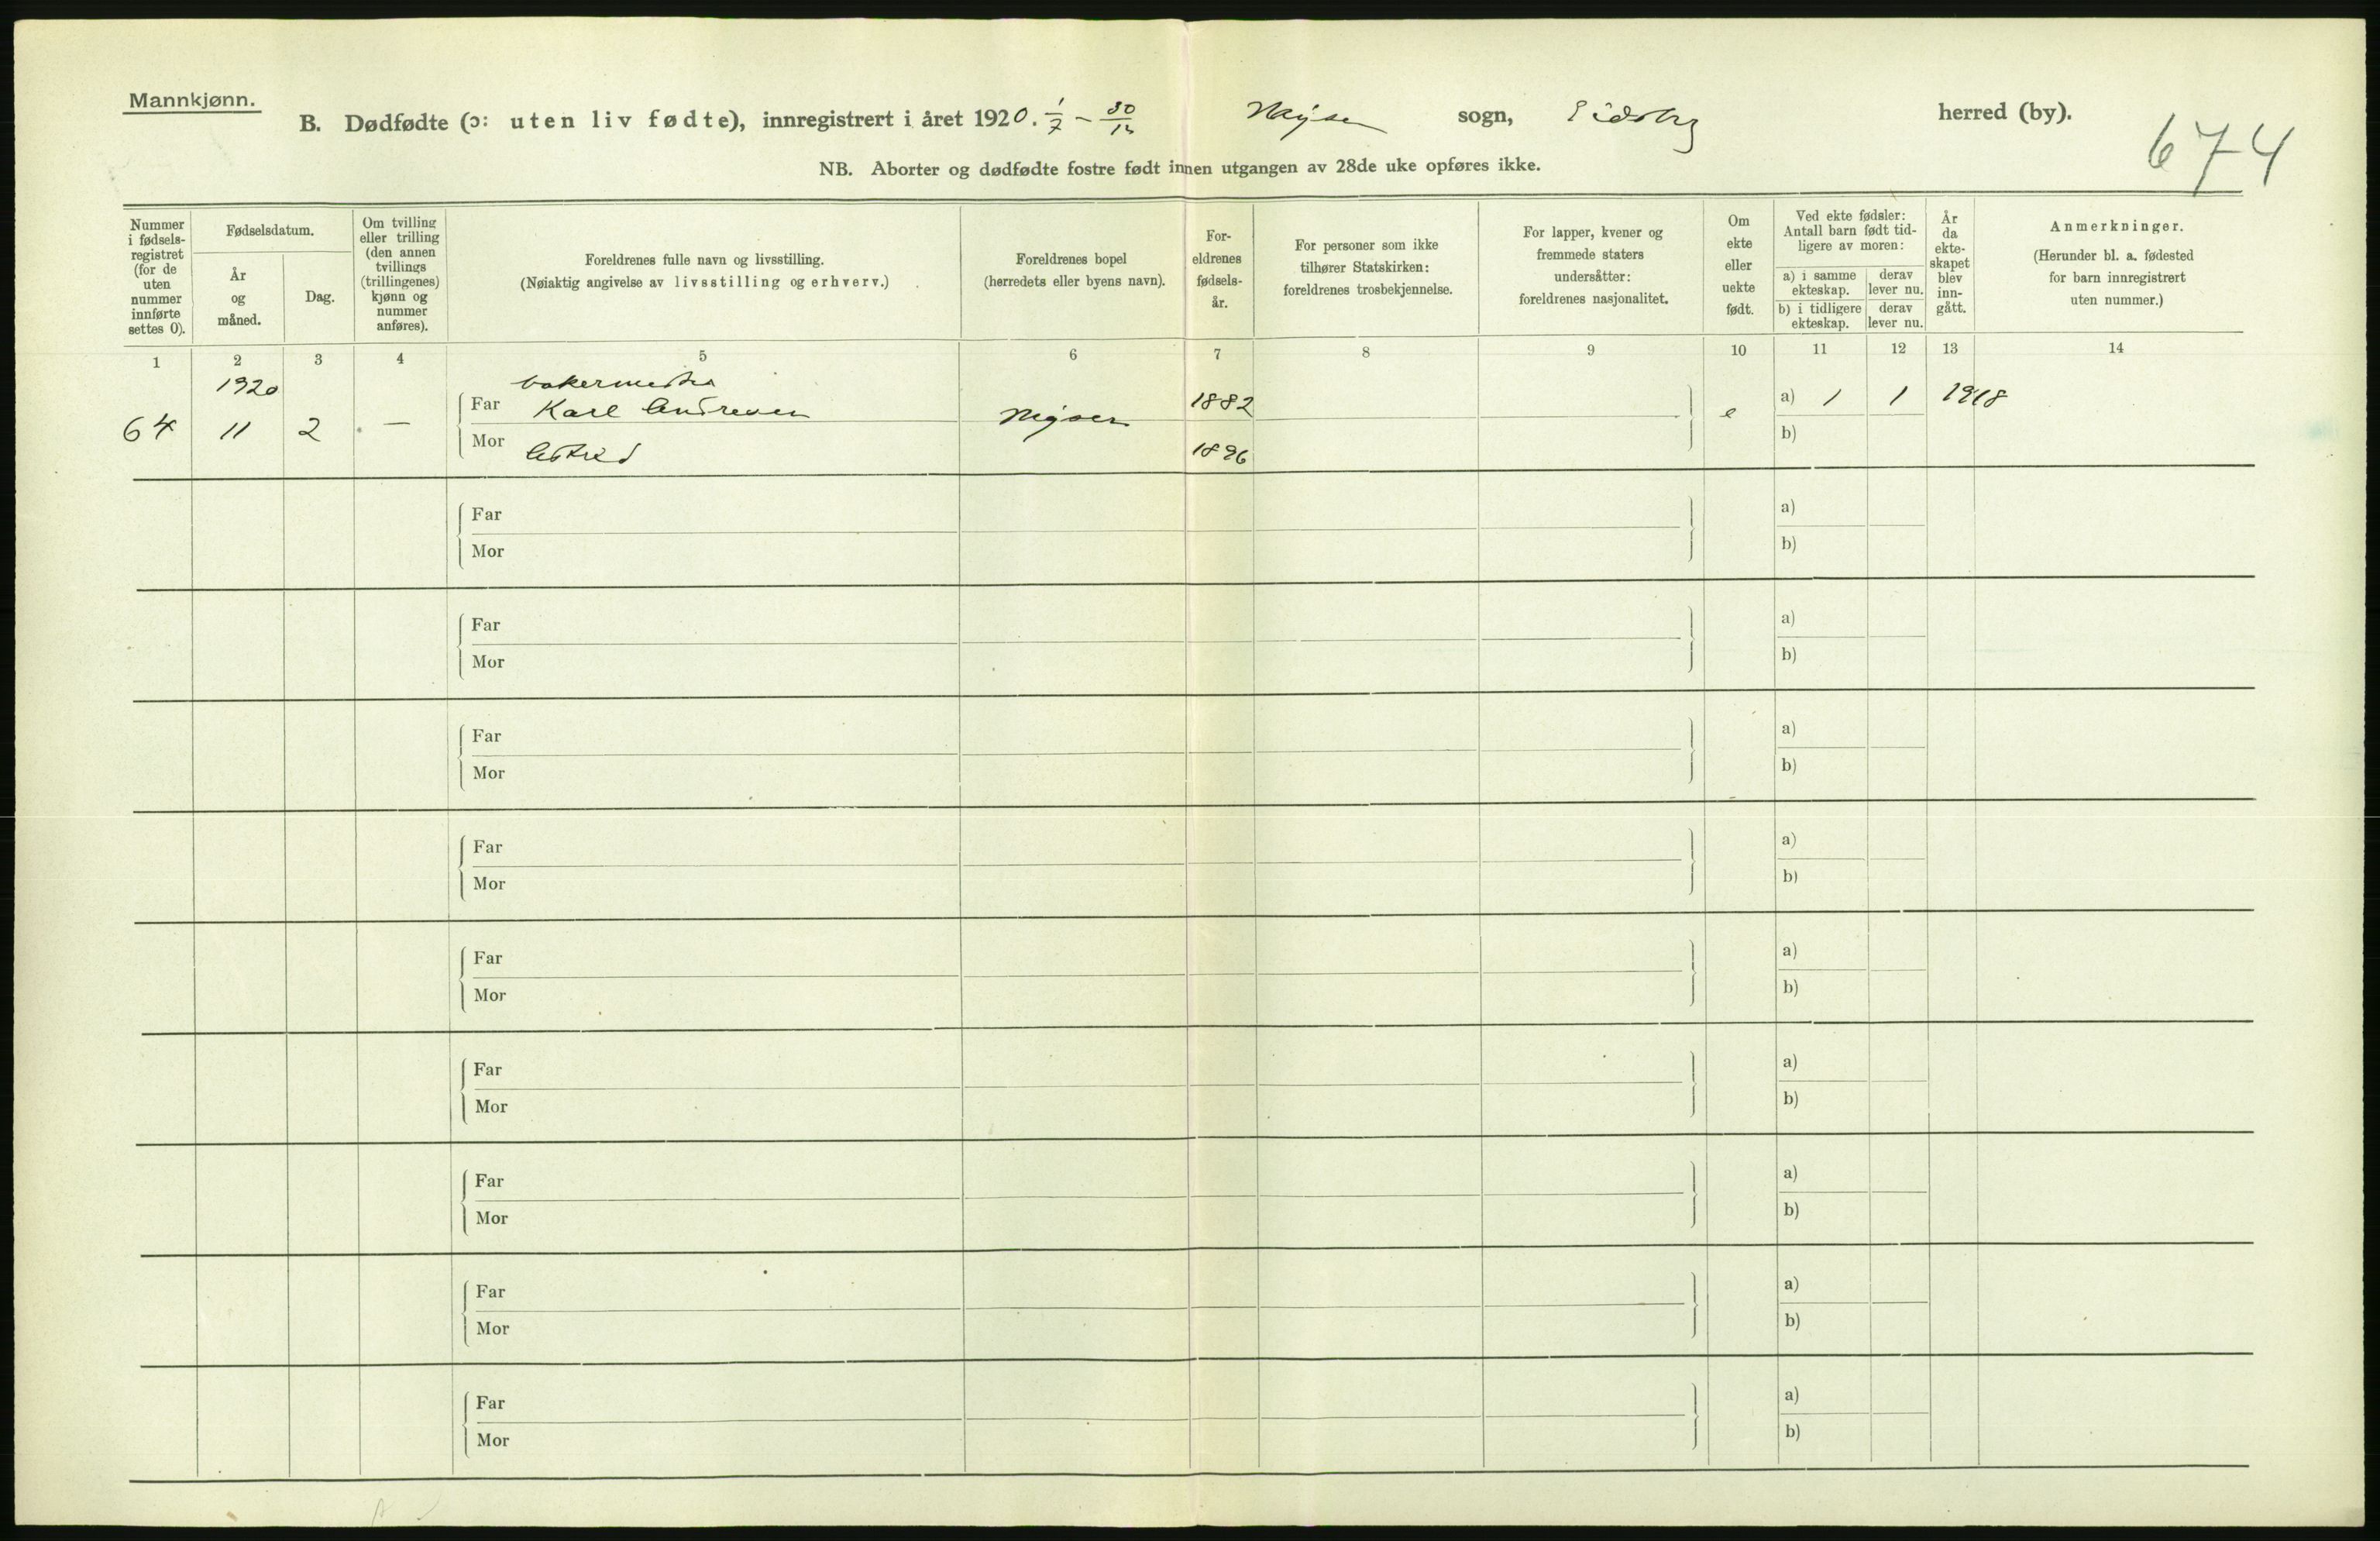 Mannkjønn.
B. Dødfødte (ɔ: uten liv fødte), innregistrert i året 1920. 1/7 – 30/12 Mysen sogn, Eidsberg herred (by).
674
NB. Aborter og dødfødte fostre født innen utgangen av 28de uke opføres ikke.
Nummer i fødsels- registret (for de uten nummer innførte settes 0).
Fødselsdatum.
År og måned.
Dag.
Om tvilling eller trilling (den annen tvillings (trillingenes) kjønn og nummer anføres).
Foreldrenes fulle navn og livsstilling.
(Nøiaktig angivelse av livsstilling og erhverv.)
Foreldrenes bopel
(herredets eller byens navn).
For- eldrenes fødsels- år.
For personer som ikke tilhører Statskirken: foreldrenes trosbekjennelse.
For lapper, kvener og fremmede staters undersåtter: foreldrenes nasjonalitet.
Om ekte eller uekte født.
Ved ekte fødsler: Antall barn født tid- ligere av moren:
a) i samme ekteskap.
derav lever nu.
b) i tidligere ekteskap.
derav lever nu.
År da ekte- skapet blev inn- gått.
Anmerkninger.
(Herunder bl. a. fødested for barn innregistrert uten nummer.)
1 2 3 4 5 6 7 8 9 10 11 12 13 14
1920 bakermester
Far Karl Andresen 1882 a) 1 1 1918
64 11 2 — Mysen e
Mor Astrid 1896 b)
Far a)
Mor b)
Far a)
Mor b)
Far a)
Mor b)
Far a)
Mor b)
Far a)
Mor b)
Far a)
Mor b)
Far a)
Mor b)
Far a)
Mor b)
Far a)
Mor b)